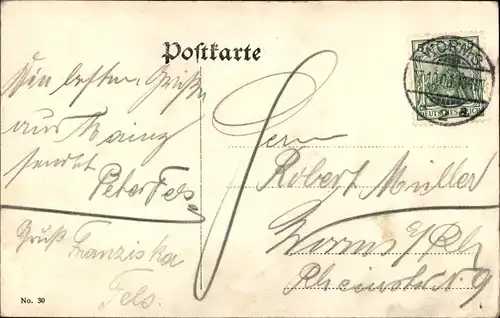 Postkarte
WORMS
DEUTSCHES REICH
a
Die besten Grüße
aus Mainz
sendet
Peter Fels
Gruß Franziska
Fels.
Herrn
Robert Müller
Worms a/Rh
Rheinstr N 9
No. 30